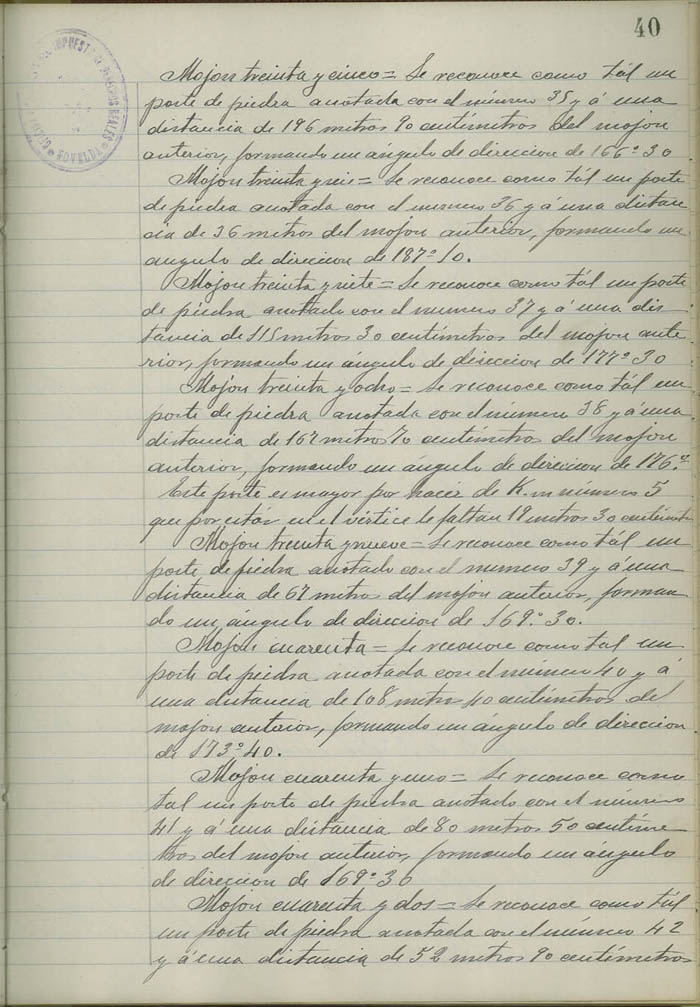 40
Mojon treinta y cinco = Se reconoce como tál un
poste de piedra anotada con el número 35 y á una
distancia de 196 metros 90 centímetros del mojon
anterior, formando un ángulo de direccion de 166º 30
Mojon treinta y seis = Se reconoce como tál un poste
de piedra anotada con el numero 36 y á una distan
cia de 36 metros del mojon anterior, formando un
angulo de direccion de 187º 10.
Mojon treinta y siete = Se reconoce como tál un poste
de piedra anotado con el numero 37 y á una dis
tancia de 115 metros 30 centímetros del mojon ante
rior, formando un ángulo de direccion de 177º 30
Mojon treinta y ocho = Se reconoce como tál un
poste de piedra anotada con el número 38 y á una
distancia de 167 metros 70 centímetros del mojon
anterior, formando un ángulo de direccion de 176.º
Este poste es mayor por hacer de K.m número 5
que por estár en el vértice le faltan 19 metros 30 centímts
Mojon treinta y nueve = Se reconoce como tál un
poste de piedra anotado con el numero 39 y á una
distancia de 67 metros del mojon anterior, forman
do un ángulo de direccion de 169.º 30.
Mojon cuarenta = Se reconoce como tal un
poste de piedra anotada con el número 40 y á
una distancia de 108 metros 40 centímetros del
mojon anterior, formando un ángulo de direccion
de 173º 40.
Mojon cuarenta y uno = Se reconoce como
tal un poste de piedra anotado con el número
41 y á una distancia de 80 metros 50 centíme
tros del mojon anterior, formando un ángulo
de direccion de 169º 30
Mojon cuarenta y dos = Se reconoce como tál
un poste de piedra anotada con el número 42
y á una distancia de 52 metros 90 centímetros